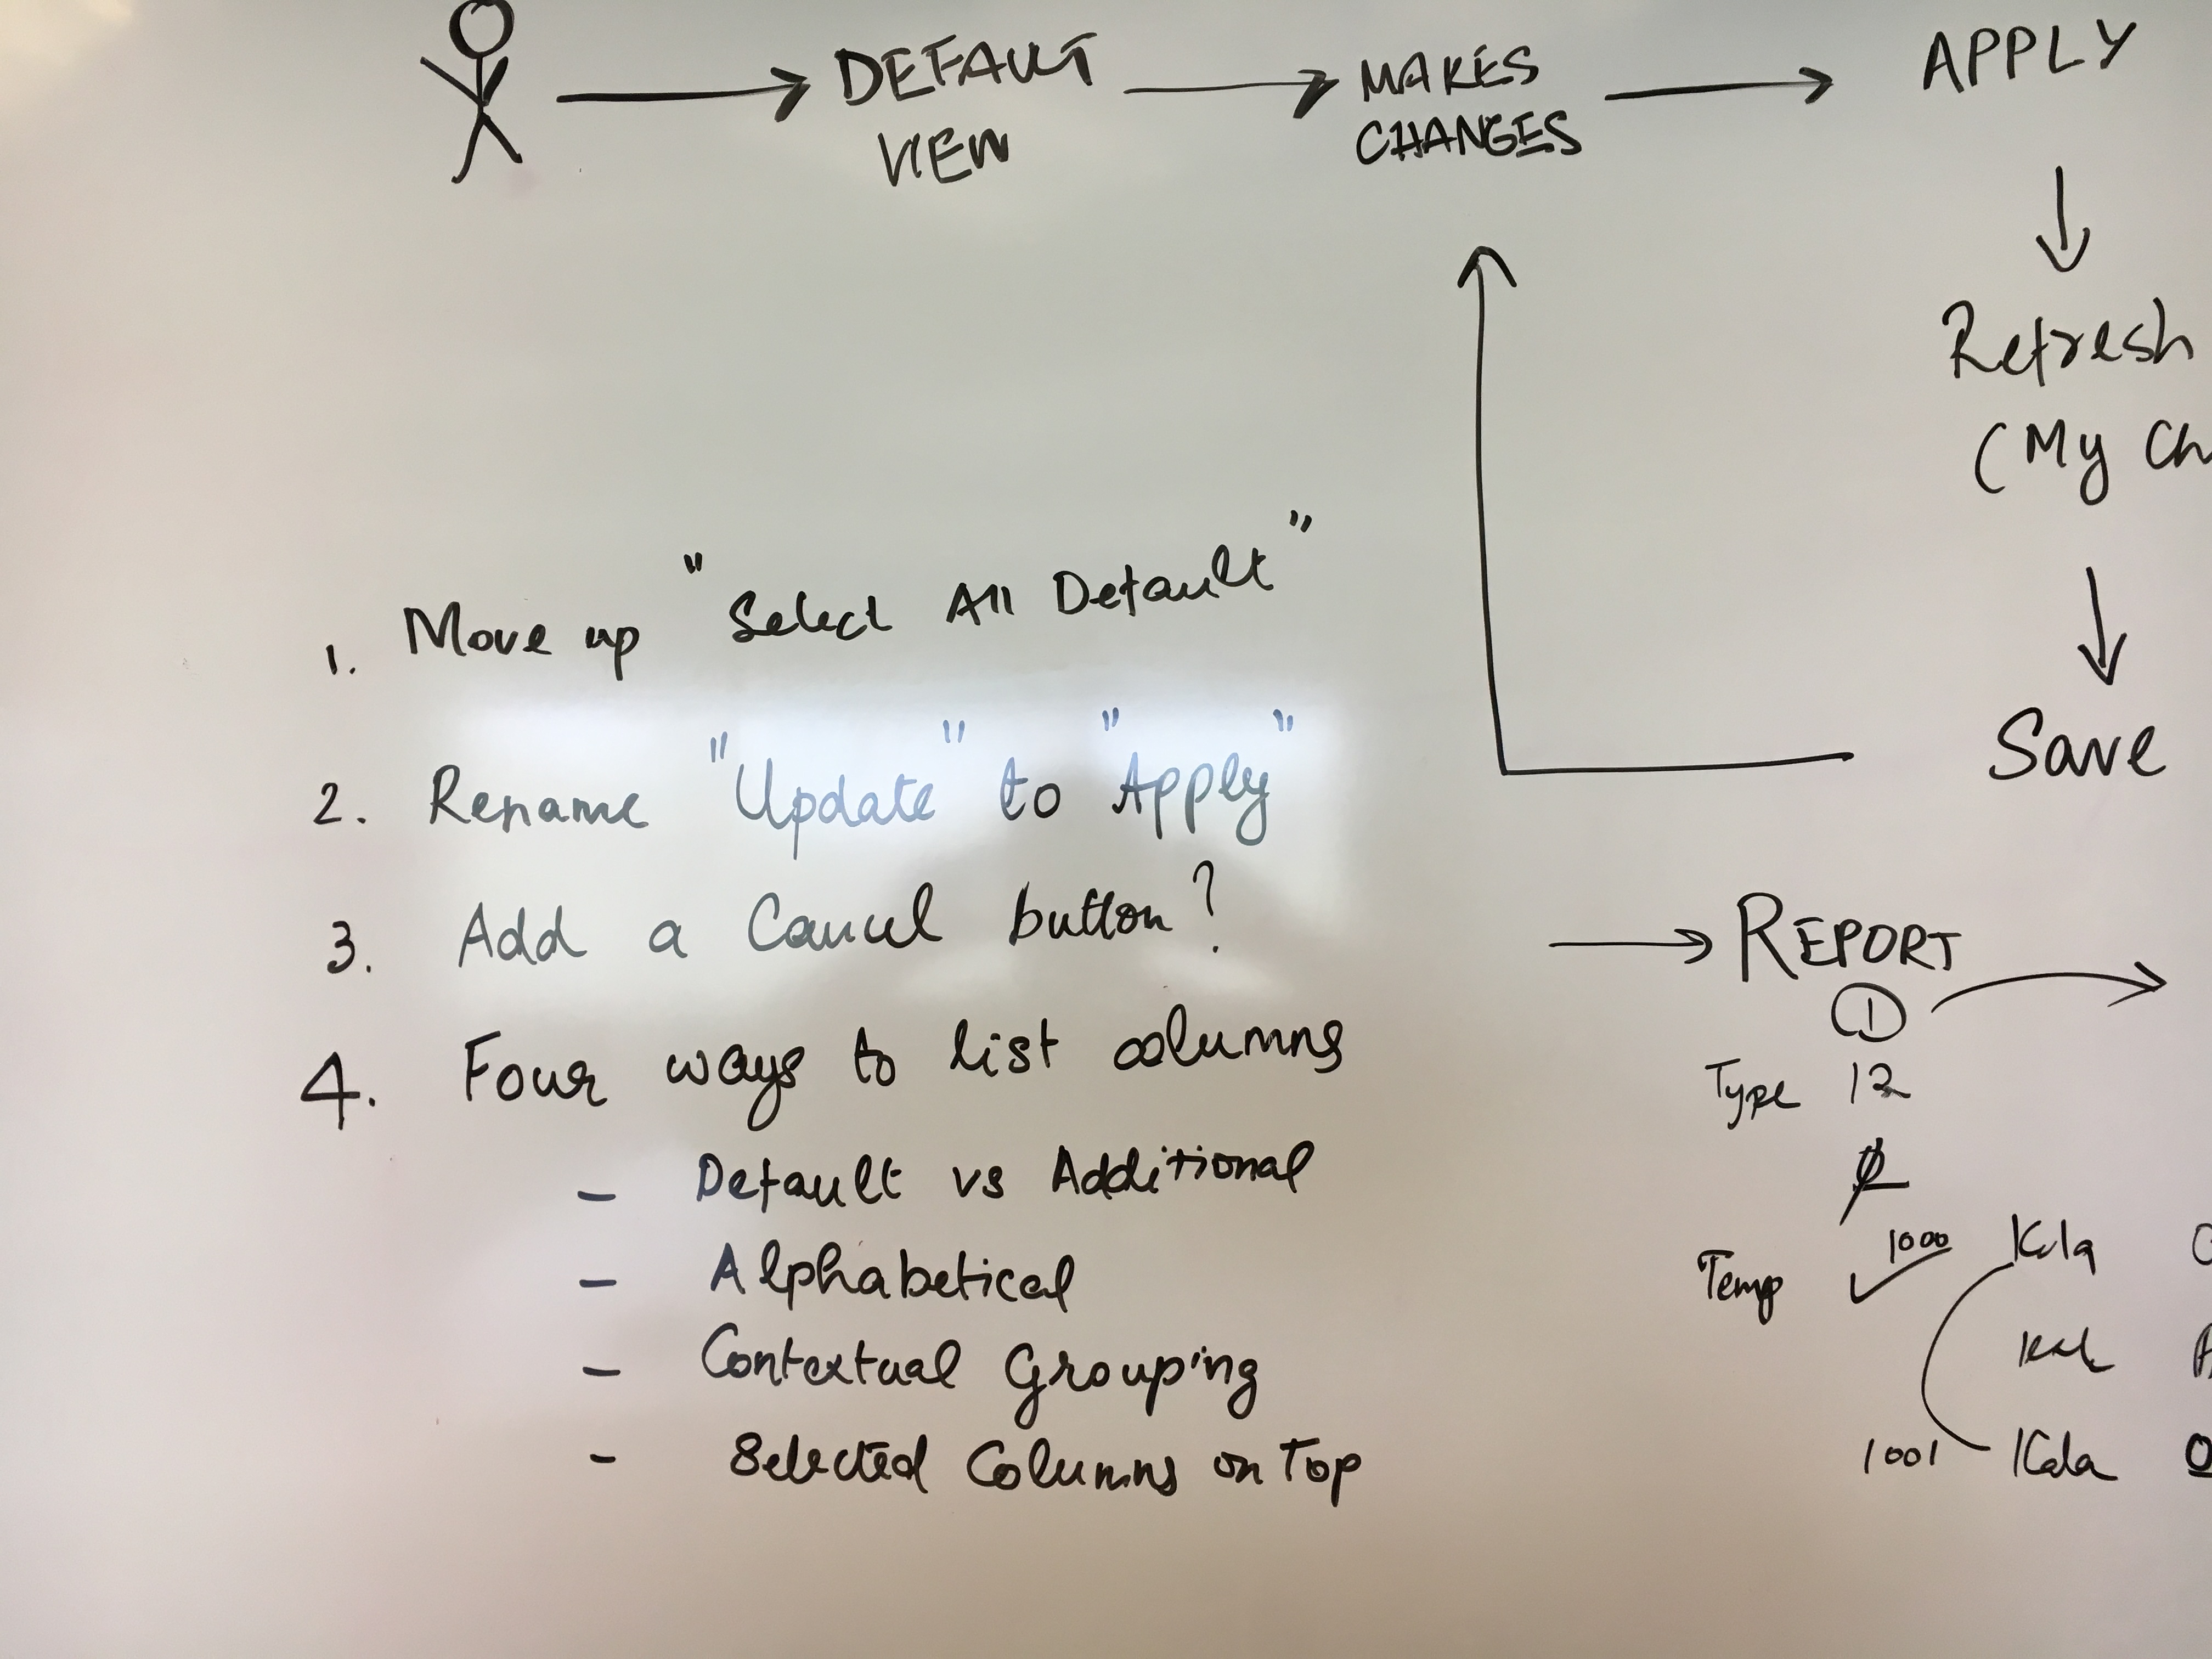 DEFAULT
VIEW
MAKES
CHANGES
APPLY
Refresh
(My Ch
Save
1. Move up "Select All Default"
2. Rename "Update" to "Apply"
3. Add a Cancel button?
4. Four ways to list columns
- Default vs Additional
- Alphabetical
- Contextual Grouping
- Selected Columns on Top
REPORT
1
Type 12
Temp 1000
1001 Kala